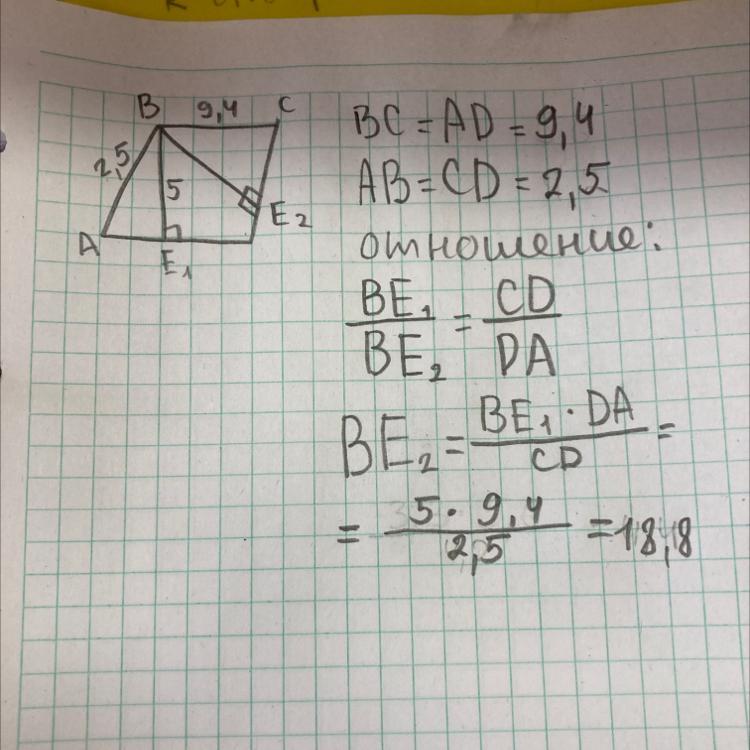 B 9,4 C
2,5
5
A E₁ E₂
BC = AD = 9,4
AB = CD = 2,5
отношение:
BE₁/BE₂ = CD/DA
BE₂ = BE₁ · DA/CD =
= 5 · 9,4/2,5 = 18,8